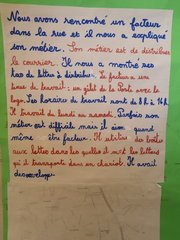 Nous avons rencontré un facteur
dans la rue et il nous a expliqué
son métier. Son métier est de distribuer
le courrier. Il nous a montré ses
tas de lettres à distribuer. Le facteur a une
tenue de travail : un gilet de la Poste avec le
logo. Ses horaires de travail sont de 8 h à 14 h.
Il travail du lundi au samedi. Parfois son
métier est difficile mais il aime quand
même être facteur. Il
aux lettres dans lesquelles il met les lettres
qu'il transporte dans un chariot. Il avait